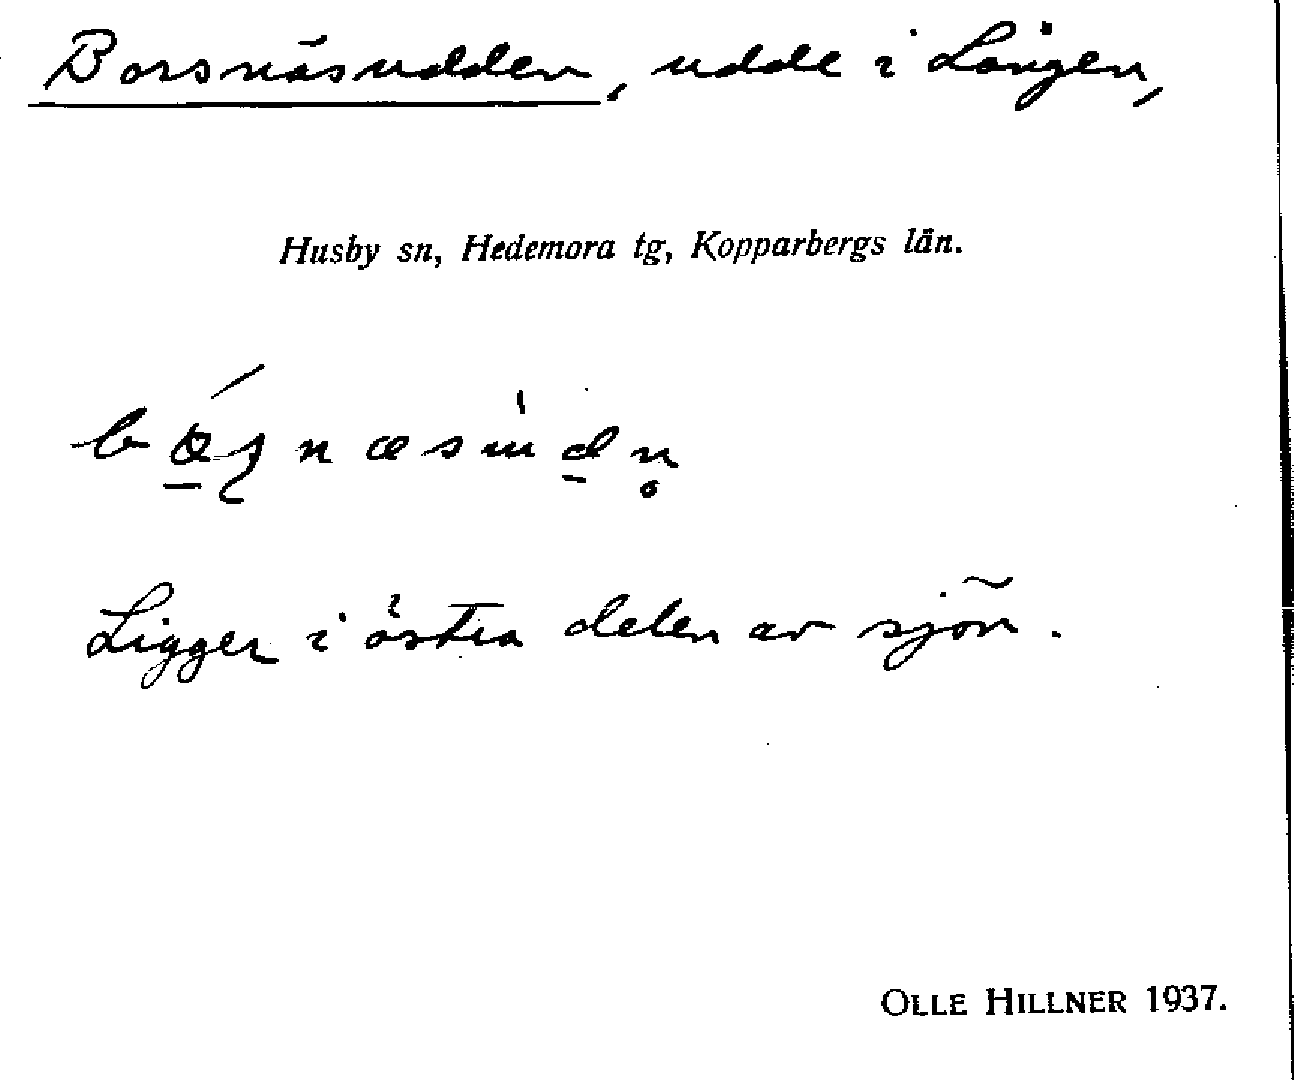 Borsnäsudden, udde i Lången,
Husby sn, Hedemora tg, Kopparbergs län.
Ligger i östra delen av sjön.
OLLE HILLNER 1937.